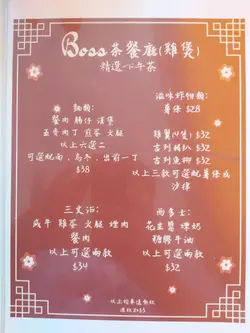 Boss 茶餐廳(雞煲)
精選下午茶
麵類:
餐肉 腸仔 漢堡
五香肉丁 煎蛋 火腿
以上六選二
可選配南,烏冬,出前一丁
$38
滋味炸物類:
薯條 $28
雞翼(4隻) $32
吉列豬扒 $32
吉列魚柳 $32
以上三款可選配薯條或
沙律
三文治:
鹹牛 雞蛋 火腿 煙肉
餐肉
以上可選兩款
$34
西多士:
花生醬 煉奶
糖漿牛油
以上可選兩款
$32
以上均奉送飲品
凍飲加$3